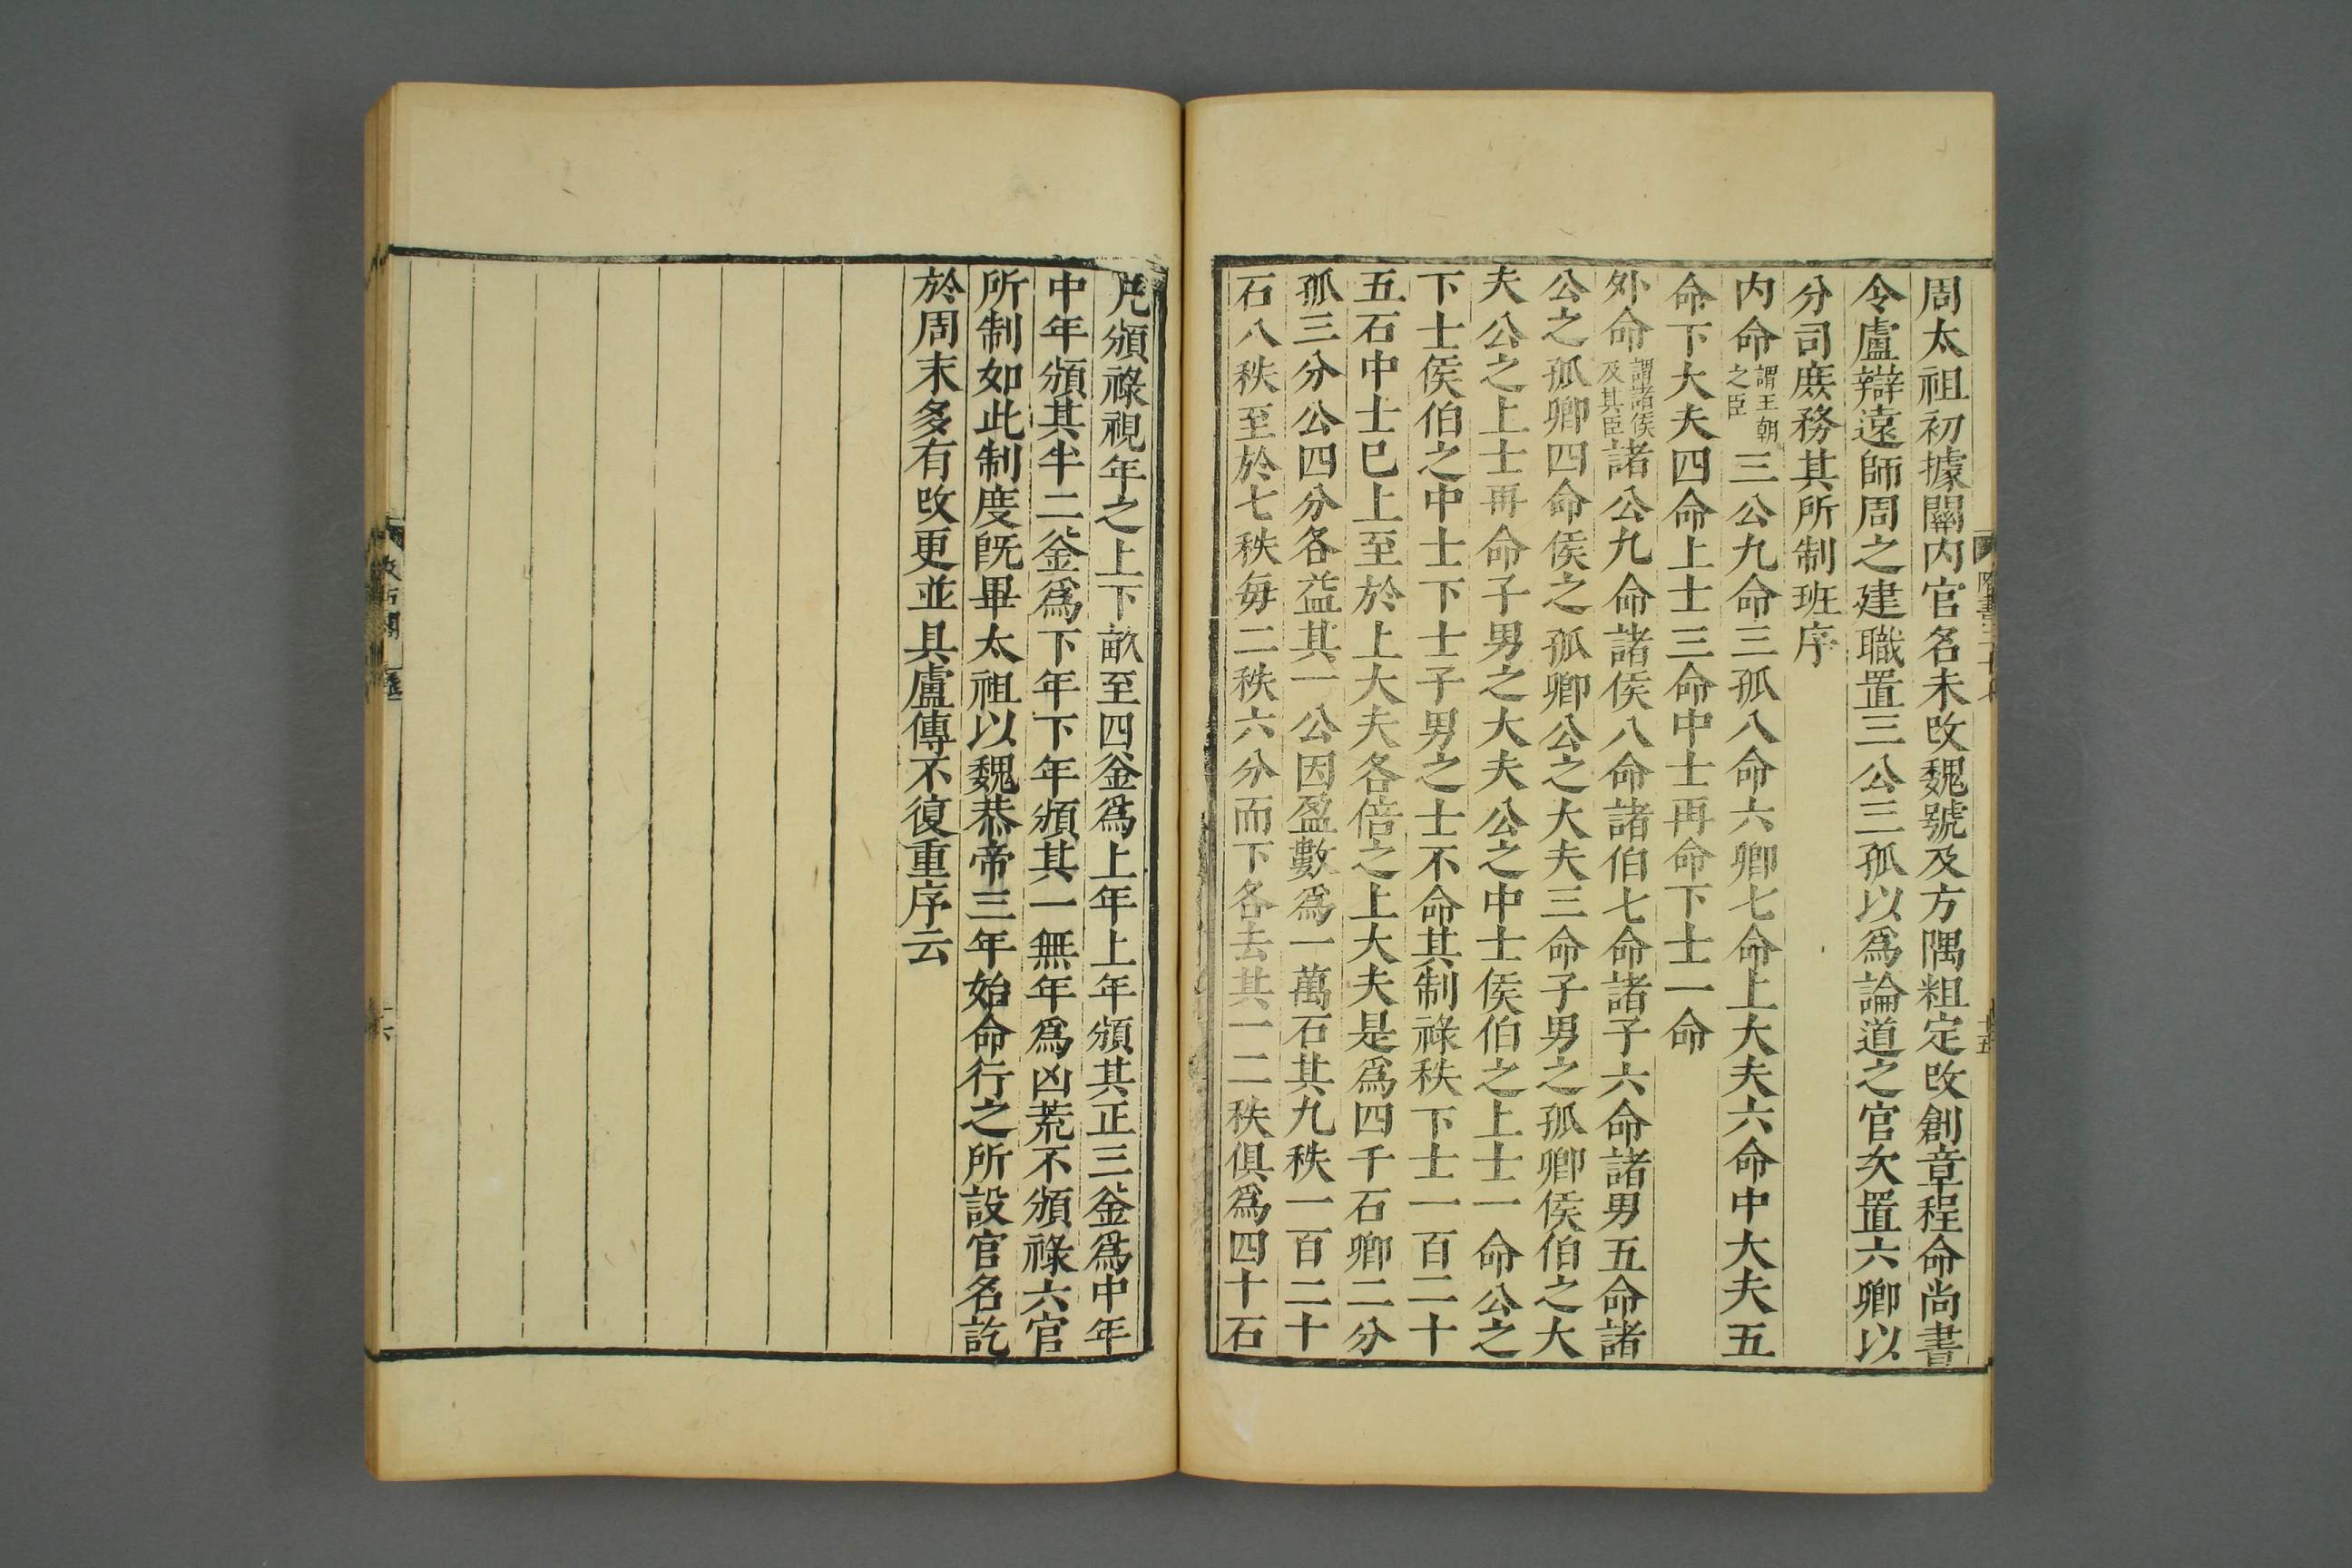 周太祖初據關内官名未改魏號及方隅粗定改創章程命尚書
令盧辯遠師周之建職置三公三孤以爲論道之官次置六卿以
分司庶務其所制班序
内命謂王朝之臣三公九命三孤八命六卿七命上大夫六命中大夫五
命下大夫四命上士三命中士再命下士一命
外命謂諸侯及其臣諸公九命諸侯八命諸伯七命諸子六命諸男五命諸
公之孤卿四命侯之孤卿公之大夫三命子男之孤卿侯伯之大
夫公之上士再命子男之大夫公之中士侯伯之上士一命公之
下士侯伯之中士下士子男之士不命其制祿秩下士一百二十
五石中士已上至於上大夫各倍之上大夫是爲四千石卿二分
孤三分公四分各益其一公因盈數爲一萬石其九秩一百二十
石八秩至於七秩每二秩六分而下各去其一二秩俱爲四十石
凡頒祿視年之上下畝至四釜爲上年上年頒其正三釜爲中年
中年頒其半二釜爲下年下年頒其一無年爲凶荒不頒祿六官
所制如此制度既畢太祖以魏恭帝三年始命行之所設官名訖
於周末多有改更並具盧傳不復重序云